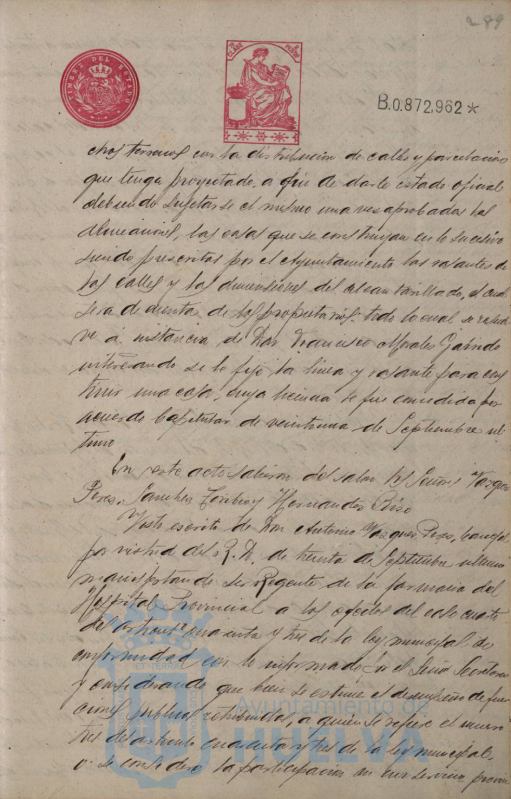 289
TIMBRE DEL ESTADO
B.0.872,962*
chos terrenos con la distribucion de calles y parcelacion
que tenga proyectada, a fin de darle estado oficial
debiendo sujetarse el mismo una vez aprobadas las
alineaciones, las casas que se construyan en lo sucesivo
siendo prescritas por el Ayuntamiento las rasantes de
las calles y las dimensiones del alcantarillado, el cual
sera de cuenta de los propietarios. todo lo cual se
ve á instancia de Don Francisco Morales Garrido
interesando se le fije la linea y rasante para cons
truir una casa, cuya licencia le fue concedida por
acuerdo Capitular de veintiuno de Septiembre ul
timo
En este acto salieron del salon los Señores Vazquez
Perez, Sanchez y Hernandez
Visto escrito de Don Antonio Vazquez Perez, concejal
por virtud del R. D. de treinta de Septiembre ultimo
manifestando ser Regente de la farmacia del
Hospital Provincial a los efectos del caso cuarto
del articulo cuarenta y tres de la ley municipal de
conformidad con lo informado por el Señor Secretario
y considerando que bien se estime el desempeño de fun
ciones publicas retribuidas, a quien se refiere el nume
ro tres del articulo cuarenta y tres de la ley municipal,
o se considere la participacion en un servicio provin
Ayuntamiento de
HUELVA